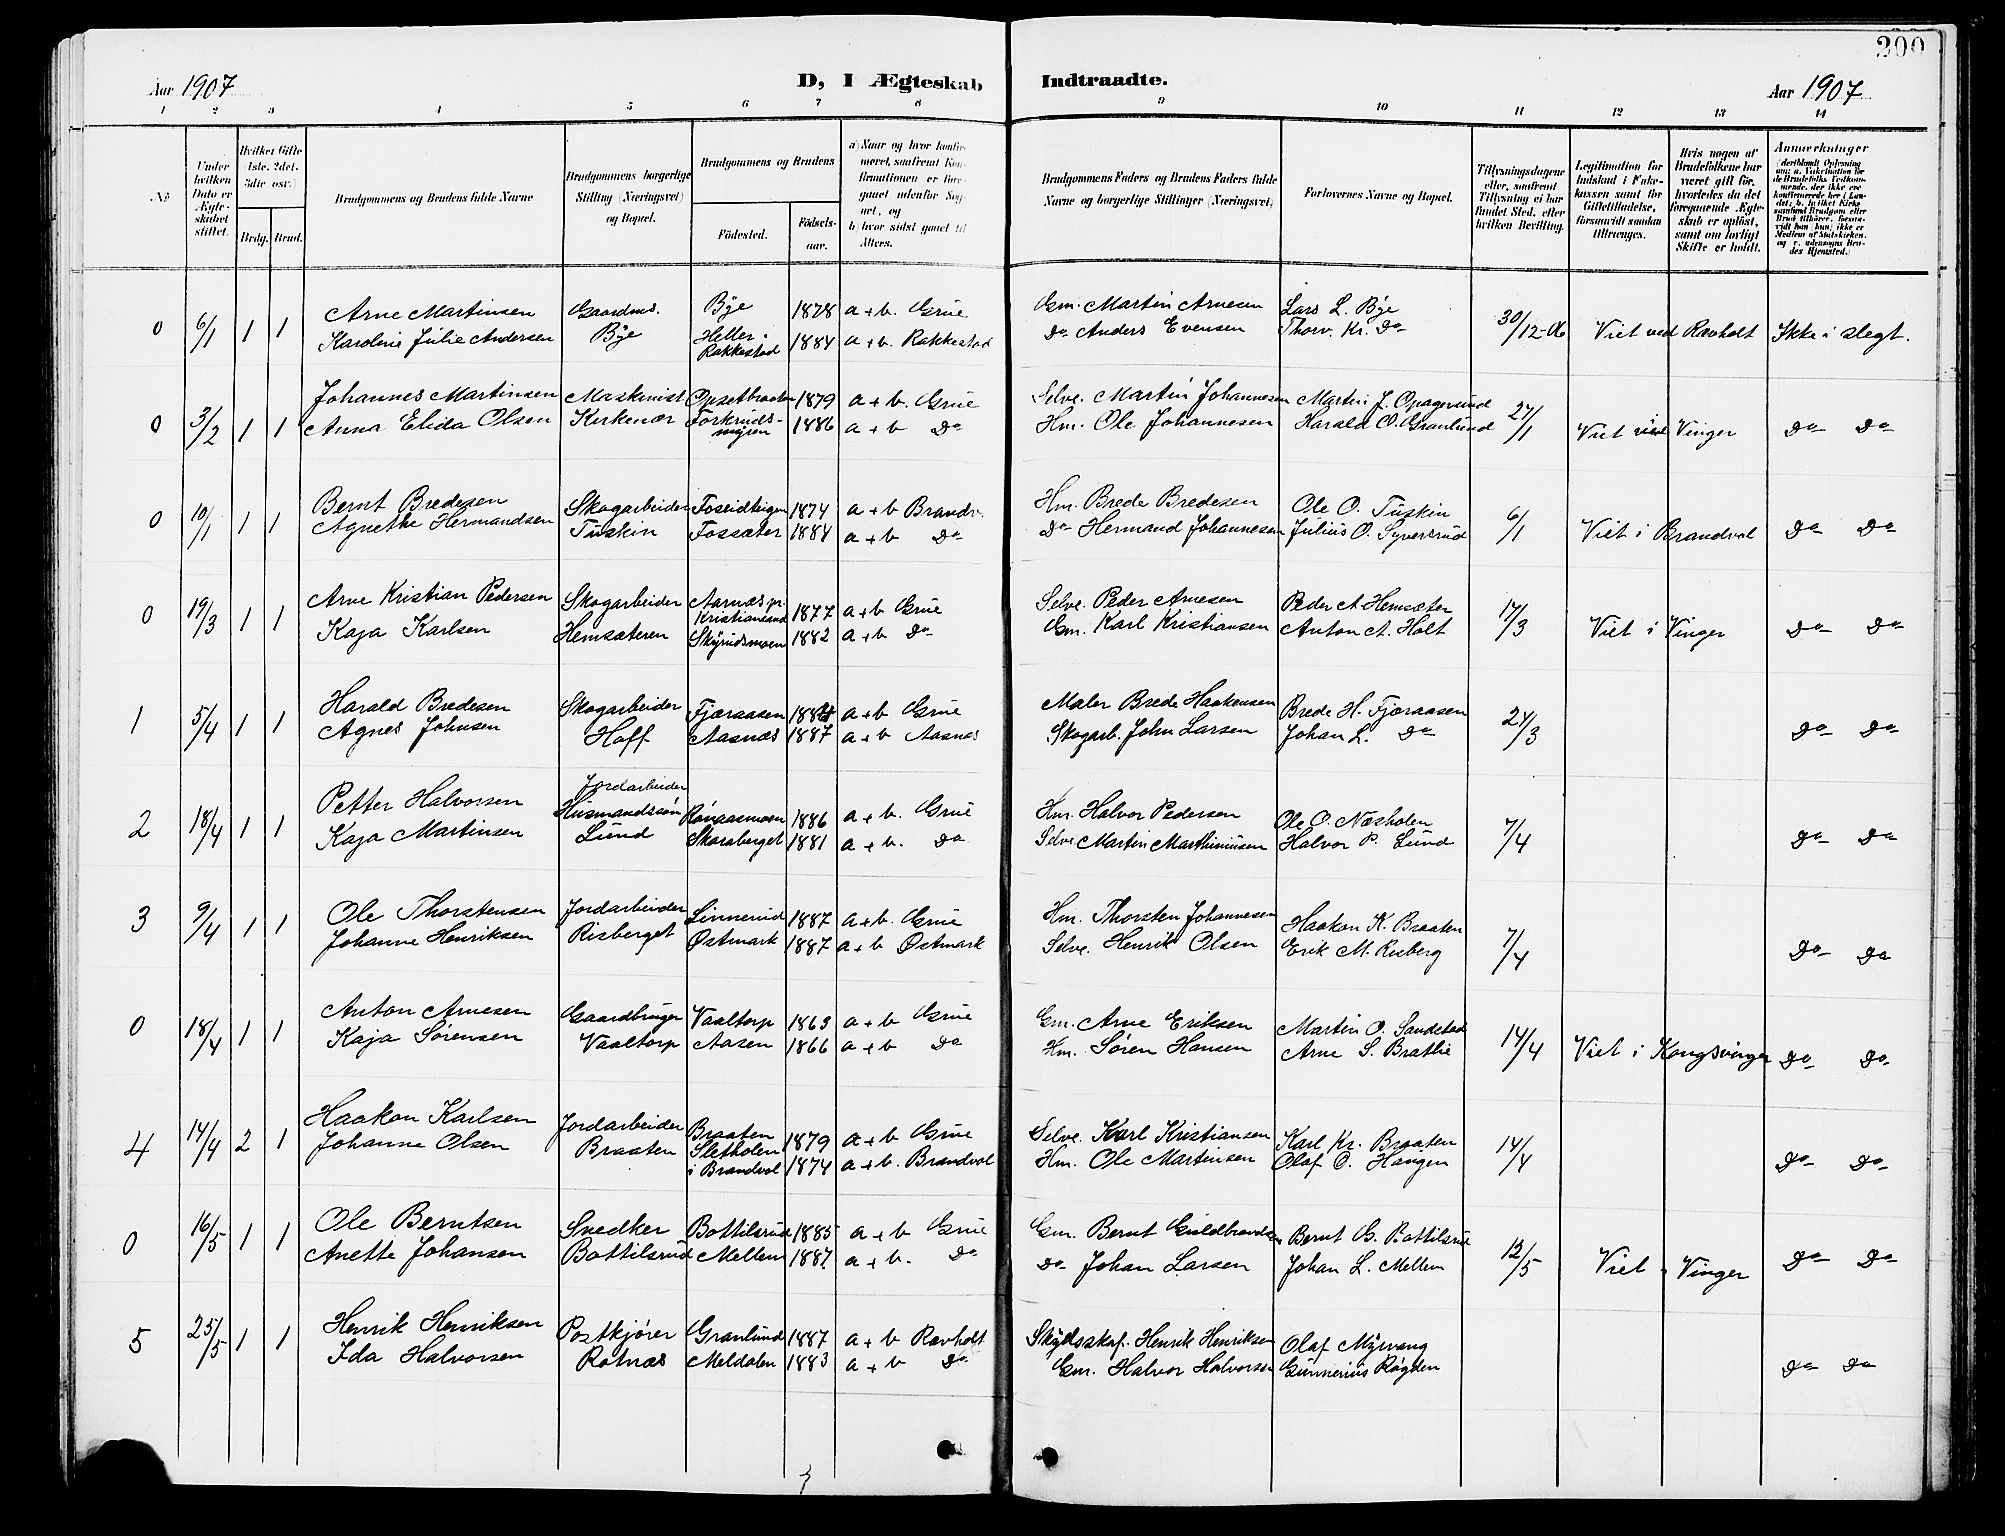 200
Aar 1907 D, I Ægteskab Indtraadte. Aar 1907
1 2 3 4 5 6 7 8 9 10 11 12 13 14
№
Under hvilken Dato er Ægteskabet stiftet.
Hvilket Gifte 1ste, 2det, 3die osv.)
Brdg. Brud.
Brudgommens og Brudens fulde Navne
Brudgommens borgerlige Stilling (Næringsvei) og Bopæl.
Brudgommens og Brudens
Fødested. Fødselsaar.
a) Naar og hvor konfirmeret, saafremt Konfirmationen er foregaaet udenfor Sognet, og
b) hvor sidst gaaet til Alters.
Brudgommens Faders og Brudens Faders fulde Navne og borgerlige Stillinger (Næringsvei)
Forlovernes Navne og Bopæl.
Tillysningsdagene eller, saafremt Tillysning ei har fundet Sted, efter hvilken Bevilling.
Legitimation for Indskud i Enkekassen samt for Giftetilladelse, forsaavidt saadan tiltrænges.
Hvis nogen af Brudefolkene har været gift før, hvorledes da det foregaaende Ægteskab er opløst, samt om lovligt Skifte er holdt.
Anmerkninger
0 6/1 1 1 Arne Martinsen Gaardms. Bye 1878 a + b. Grue Gm. Martin Arnesen Lars L. Bye 30/12-06 Viet ved Ravholt Ikke i slegt.
Karoline Julie Andersen Bye Heller i Rakkestad 1884 a + b. Rakkestad Do Anders Evensen Thorv. Kr. Do
0 3/2 1 1 Johannes Martinsen Maskinist Opsetbraaten 1879 a + b. Grue Selve. Martin Johannesen Martin J. Opagersund 27/1 Viet ved Vinger Do Do
Anna Elida Olsen Kirkenær Forkrudsmyren 1886 a + b Do Hm. Ole Johannesen Harald O. Granlund
0 10/1 1 1 Bernt Bredesen Skogarbeider Foseidteigen 1874 a + b Brandv. Hm. Brede Bredesen Ole O. Tuskin 6/1 Viet i Brandval Do Do
Agnethe Hermandsen Tuskin Fossæter 1884 a + b Do Do Hermand Johannesen Julius O. Syversrud
0 19/3 1 1 Arne Kristian Pedersen Skogarbeider Aarnæs pr. Kristiansund 1877 a + b Grue Selve. Peder Arnesen Peder A. Hemsæter 17/3 Viet i Vinger Do Do
Kaja Karlsen Hemsæteren Skyrudsmoen 1882 a + b Do Gm. Karl Kristiansen Anton A. Holt
1 5/4 1 1 Harald Bredesen Skogarbeider Fjæraasen 1884 a + b Grue Maler Brede Haakensen Brede H. Fjæraasen 24/3 Do Do
Agnes Johnsen Hoff Aasnæs 1887 a + b Aasnæs Skogarb. John Larsen Johan L. Do
2 18/4 1 1 Petter Halvorsen Jordarbeider Husmandssøn Rønaasmoen 1886 a + b. Grue Hm. Halvor Pedersen Ole O. Næsholen 7/4 Do Do
Kaja Martinsen Lund Skaraberget 1881 a + b. Do Selve Martin Marthiniusen Halvor P. Lund
3 9/4 1 1 Ole Thorstensen Jordarbeider Linnerud 1887 a + b. Grue Hm. Thorsten Johannesen Haakon K. Braaten 7/4 Do Do
Johanne Henriksen Risberget Østmark 1887 a + b Østmark Selve. Henrik Olsen Erik M. Risberg
0 18/4 1 1 Anton Arnesen Gaardbruger Vaaltorp 1863 a + b Grue Gm. Arne Eriksen Martin O. Sandstad 14/4 Viet i Kongsvinger Do Do
Kaja Sørensen Vaaltorp Aasen 1866 a + b Do Hm. Søren Hansen Arne S. Brathe
4 14/4 2 1 Haakon Karlsen Jordarbeider Braaten 1879 a + b Grue Selve. Karl Kristiansen Karl Kr. Braaten 14/4 Do Do
Johanne Olsen Braaten Sletholen i Brandval 1874 a + b. Brandval Hm. Ole Martinsen Olaf O. Haugen
0 16/5 1 1 Ole Berntsen Snedker Bottilsrud 1885 a + b Grue Gm. Bernt Guldbrandsen Bernt G. Bottilsrud 12/5 Viet i Vinger Do Do
Anette Johansen Bottilsrud Mellem 1887 a + b. Do Do Johan Larsen Johan L. Mellem
5 25/5 1 1 Henrik Henriksen Postkjører Granlund 1887 a + b Ravholt Skydsskaf. Henrik Henriksen Olaf Myrvang Do Do
Ida Halvorsen Rotnæs Meldalen 1883 a + b Do Gm. Halvor Halvorsen Gunnerius Røgden